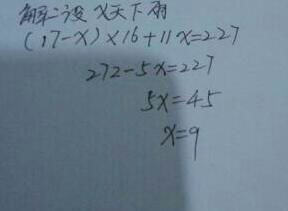 解：设x天下雨
(17-x)×16+11x=227
272-5x=227
5x=45
x=9